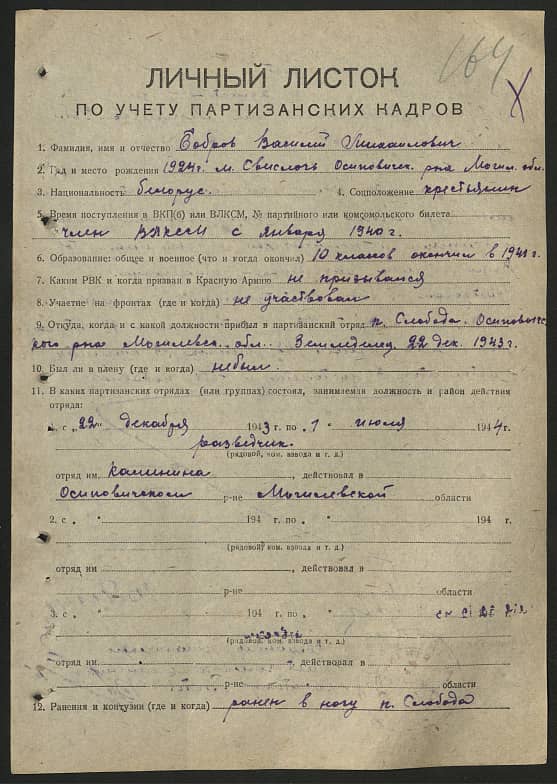 164
ЛИЧНЫЙ ЛИСТОК
ПО УЧЕТУ ПАРТИЗАНСКИХ КАДРОВ
1. Фамилия, имя и отчество Бобров Василий Михайлович
2. Год и место рождения 1924г. м. Свислочь Осиповичск. р-на Могил. обл.
3. Национальность белорус. 4. Соцположение крестьянин
5. Время поступления в ВКП(б) или ВЛКСМ, № партийного или комсомольского билета
член ВЛКСМ с января 1940 г.
6. Образование: общее и военное (что и когда окончил) 10 классов окончил в 1941 г.
7. Каким РВК и когда призван в Красную Армию не призывался
8. Участие на фронтах (где и когда) не участвовал
9. Откуда, когда и с какой должности прибыл в партизанский отряд п. Слобода. Осиповичс-
кого р-на Могилевск. обл. Земледелец 22 дек. 1943 г.
10. Был ли в плену (где и когда) не был.
11. В каких партизанских отрядах (или группах) состоял, занимаемая должность и район действия
отряда:
1. с „22“ декабря 1943 г. по „1“ июля 1944 г.
разведчик.
(рядовой, ком. взвода и т. д.)
отряд им. Калинина, действовал в
Осиповичском р-не Могилевской области
2. с „ “ 194 г. по „ “ 194 г.
(рядовой, ком. взвода и т. д.)
отряд им., действовал в
р-не области
3. с „ “ 194 г. по „ “
(рядовой, ком. взвода и т. д.)
отряд им., действовал в
р-не области
12. Ранения и контузии (где и когда) ранен в ногу п. Слобода